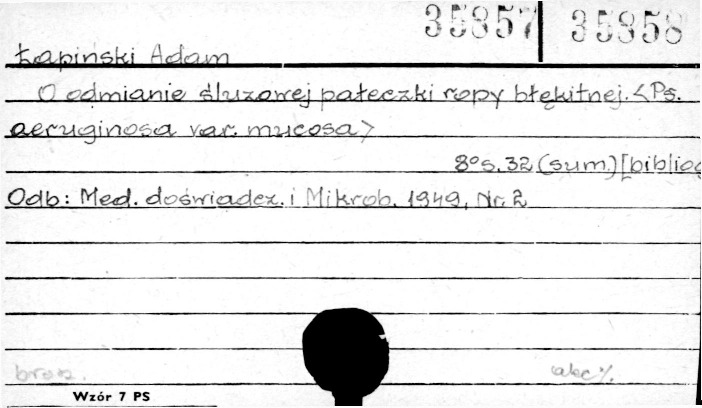 35857 35858
Łapiński Adam
O odmianie śluzowej pałeczki ropy błękitnej. <Ps.
aeruginosa var. mucosa>
8° s. 32 (sum.) [bibliog
Odb: Med. doświadcz. i Mikrob. 1949, Nr. 2
brosz.
Wzór 7 PS